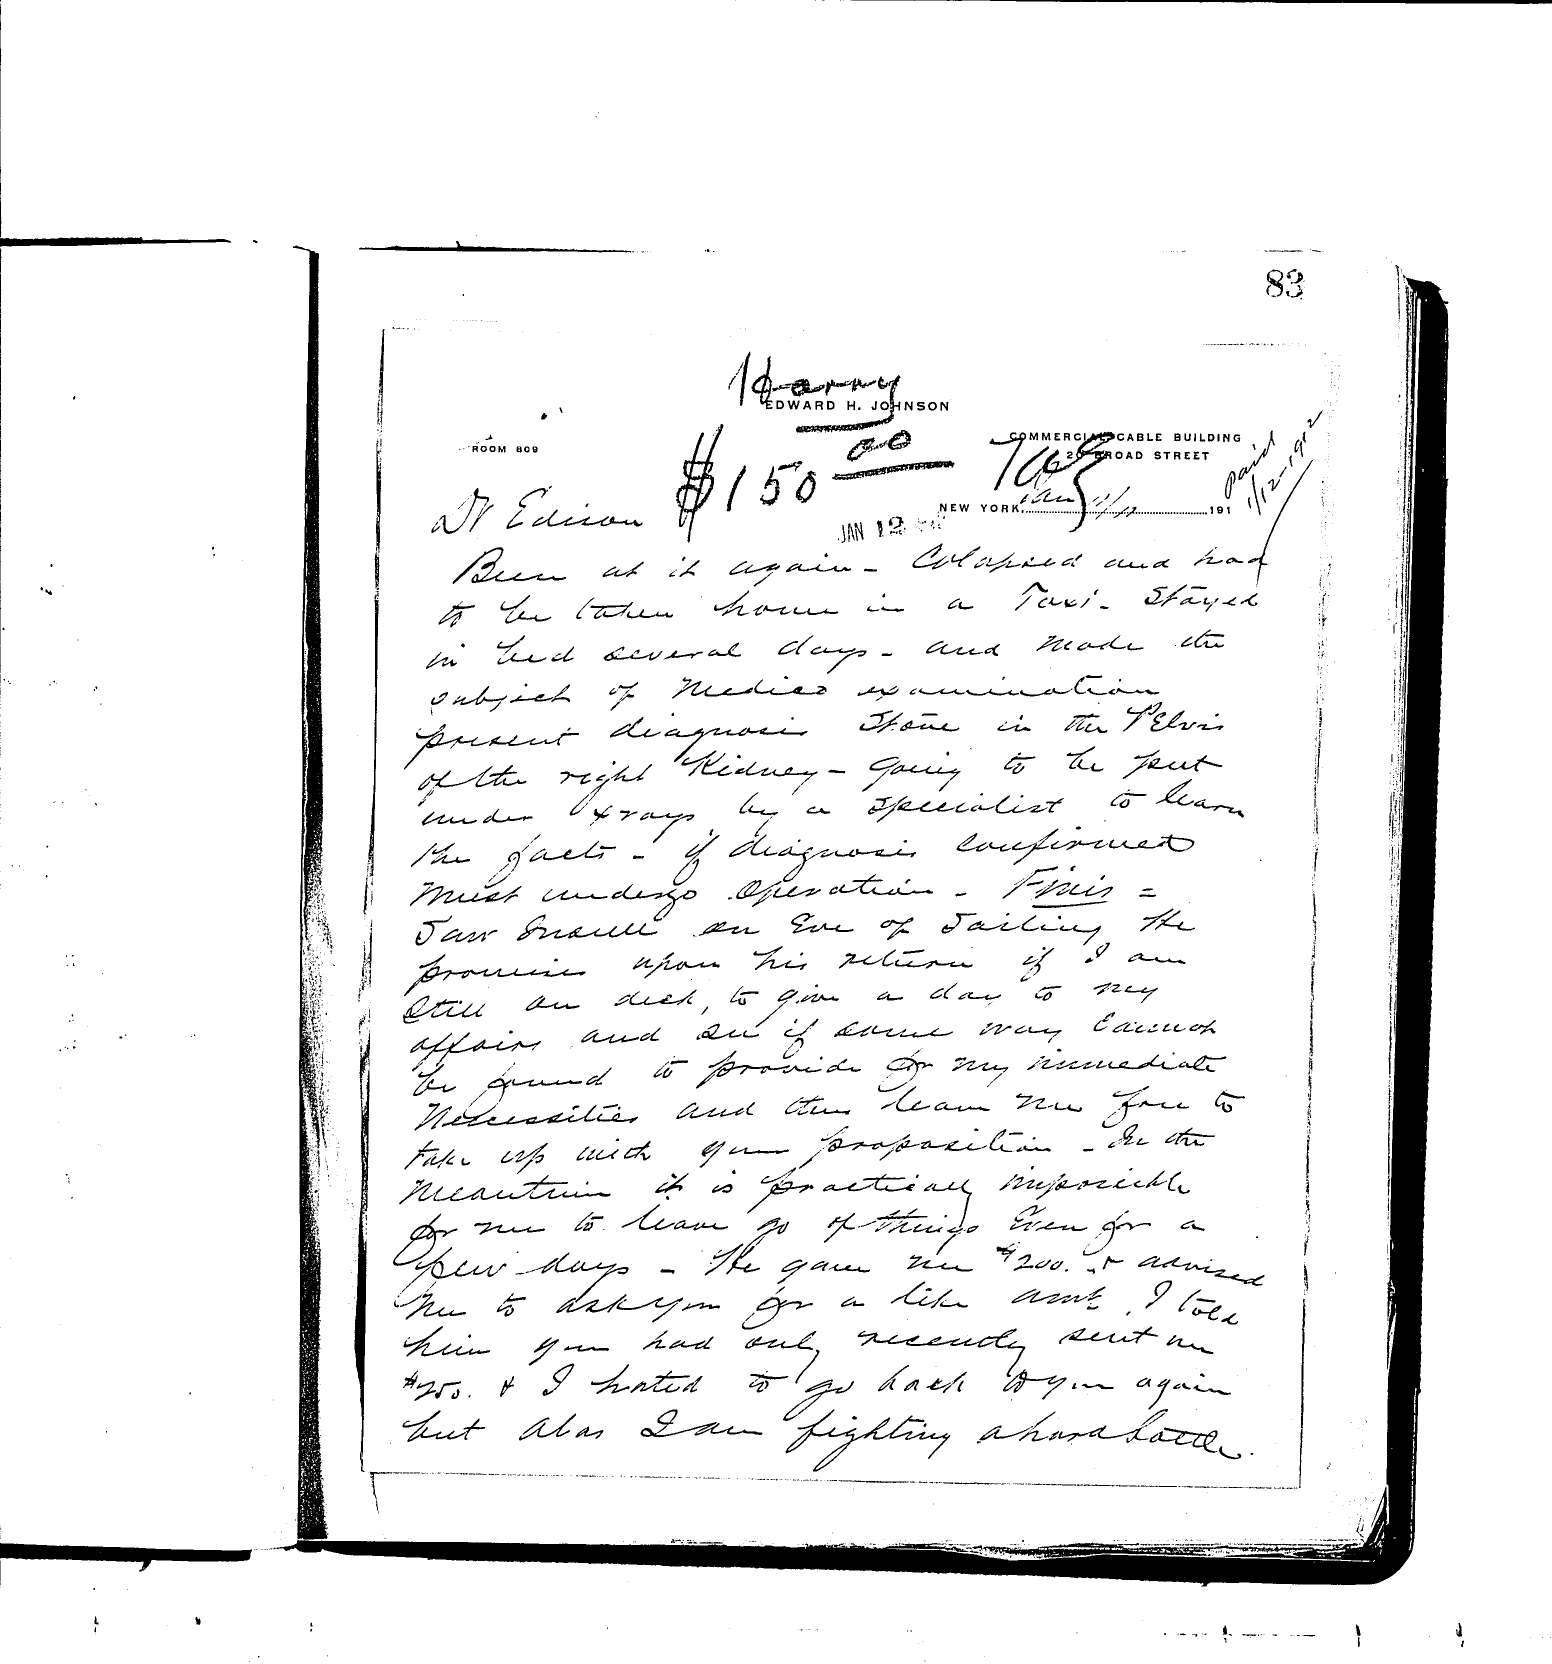 83
Harry
EDWARD H. JOHNSON
ROOM 809
COMMERCIAL CABLE BUILDING
20 BROAD STREET
$150 00
TAE
Paid
1/12-1912
NEW YORK, Jan 11/12 191
JAN 12
Dr Edison
Been at it again - Colapsed and had
to be taken home in a Taxi - Stayed
in bed several days - and made the
subject of Medico examination
present diagnosis Stone in the Pelvis
of the right Kidney - going to be put
under xrays by a specialist to learn
the facts - if diagnosis confirmed
must undergo operation - Finis =
Saw Insull on Eve of Sailing He
promises upon his return if I am
still on deck, to give a day to my
affairs and see if some way cannot
be found to provide for my immediate
Necessities and thus leave me free to
take up with your proposition - In the
Meantime it is practically impossible
for me to leave go of things Even for a
few days - He gave me $200. & advised
me to ask you for a like amt. I told
him you had only recently sent me
$250. & I hated to go back to you again
but alas I am fighting a hard battle.